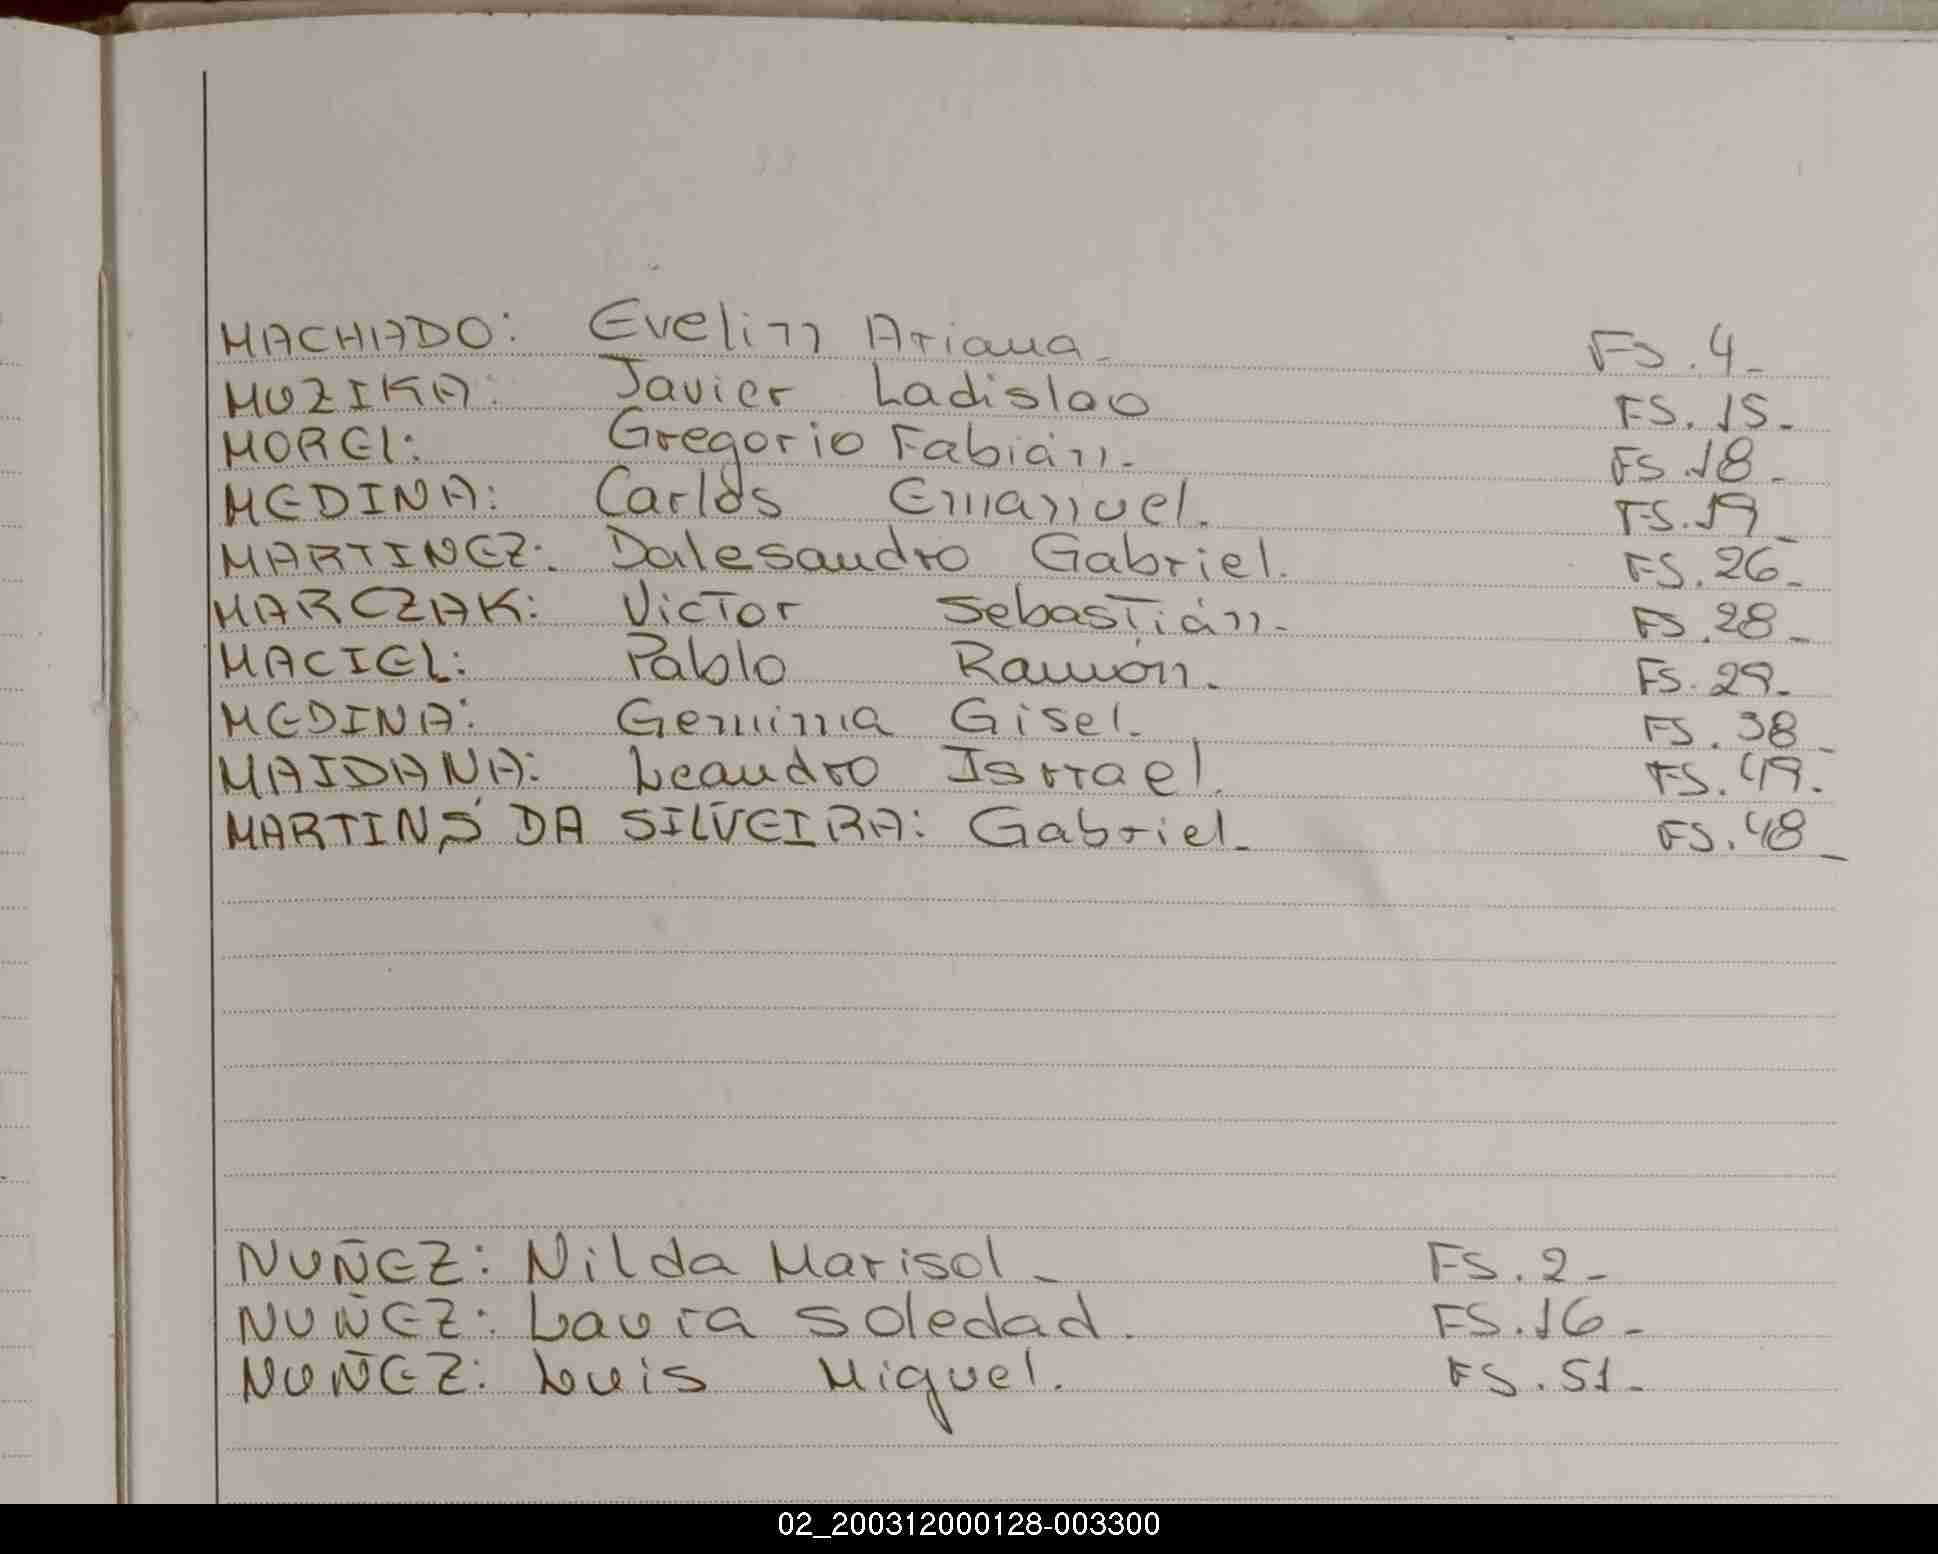 MACHADO: Evelinn Ariana. FS. 4-
MUZIKA: Javier Ladislao FS. 15-
MOREl: Gregorio Fabián.- FS. 18-
MEDINA: Carlos Emanuel. FS. 19-
MARTINEZ: Dalesandro Gabriel. FS. 26-
MARCZAK: Victor Sebastián.- FS. 28-
MACIEL: Pablo Ramón.- FS. 29-
MEDINA: Gemima Gisel.- FS. 38-
MAIDANA: Leandro Isrrael. FS. 49.
MARTINS DA SILVEIRA: Gabriel.- FS. 48-
NUÑEZ: Nilda Marisol- FS. 2-
NUÑEZ: Laura Soledad. FS. 16-
NUÑEZ: Luis Miguel. FS. 51-
02_200312000128-003300